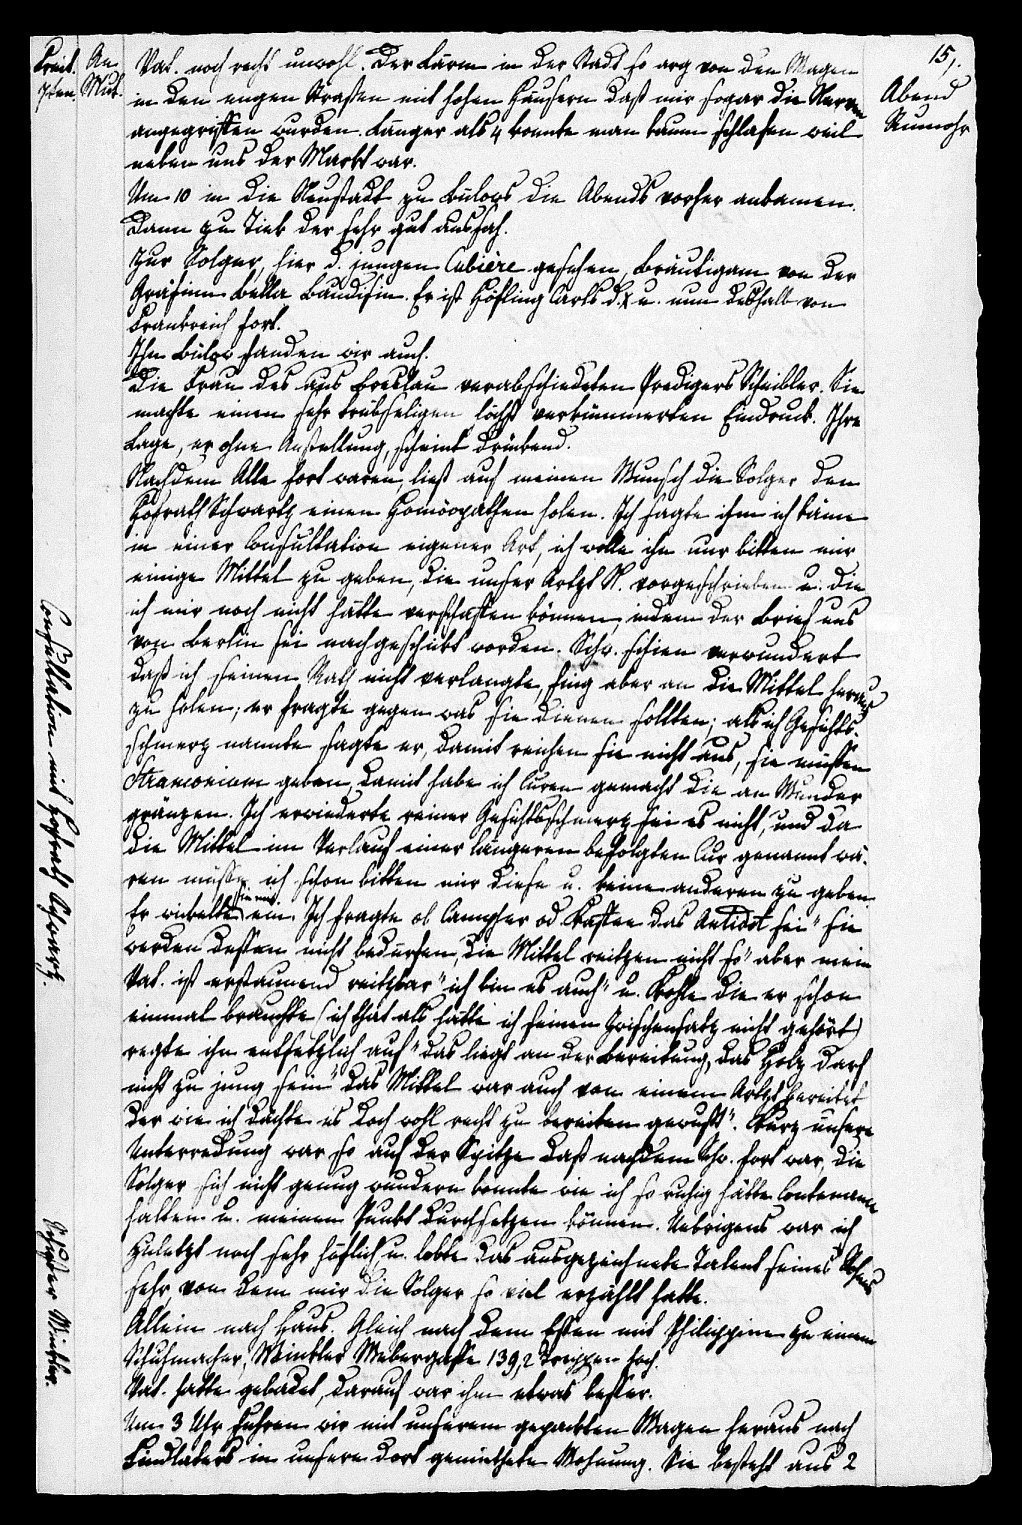 15.
Freit. 7ten.
An Mut.
Abend
Rumohr
Vat. noch recht unwohl. Der Lärm in der Stadt so arg von den Wagen
in den engen Straßen mit hohen Häusern daß mir sogar die Nerven
angegriffen wurden. Länger als 4 konnte man kaum schlafen weil
neben uns der Markt war.
Um 10 in die Neustadt zu Bülows die Abends vorher ankamen.
Dann zu Tiek der sehr gut aussah.
Zur Solger, hier d. jungen Cubière gesehen, Bräutigam von der
Gräfinn Bella Baudissin. Er ist Höfling Carls d. X u. nun deshalb von
Frankreich fort.
Ihn Bülow fanden wir auch.
Die Frau des aus Breslau verabschiedeten Predigers Scheibler. Sie
machte einen sehr trübseligen, höchst verkümmerten Eindruck. Ihre
Lage, er ohne Anstellung, scheint drükend.
Nachdem Alle fort waren, ließ auf meinen Wunsch die Solger den
Hofrath Schwartz einen Homöopathen holen. Ich sagte ihm ich käme
in einer Consultation eigener Art, ich wolle ihn nur bitten mir
einige Mittel zu geben, die unser Artzt N. vorgeschrieben u. die
ich mir noch nicht hätte verschaffen können, indem der Brief uns
von Berlin sei nachgeschikt worden. Schw. schien verwundert
daß ich seinen Rath nicht verlangte, fing aber an die Mittel heraus
zu holen; er fragte gegen was sie dienen sollten; als ich Gesichts-
schmerz nannte sagte er, damit reichen sie nicht aus, sie müssen
Stramonium geben, damit habe ich Curen gemacht die an Wunder
gränzen. Ich erwiederte reiner Gesichtsschmerz sei es nicht, und da
die Mittel im Verlauf einer längeren befolgten Cur genannt wä-
ren müsse ich schon bitten mir diese u. keine anderen zu geben
Er wikelte sie nun ein. Ich fragte ob Campher od Kaffee das Antidot sei" sie
werden dessen nicht bedürfen, die Mittel reitzen nicht so" aber mein
Vat. ist erstaunend reitzbar" ich bin es auch" u. Kohle die er schon
einmal brauchte (ich that als hätte ich seinen Zwischensatz nicht gehört)
regte ihn entsetzlich auf" das liegt an der Bereitung, das Holz darf
nicht zu jung sein" das Mittel war auch von einem Artzt bereitet
der wie ich dächte es doch wohl recht zu bereiten gewußt". Kurz unsere
Unterredung war so auf der Spitze daß nachdem Schw. fort war, die
Solger sich nicht genug wundern konnte wie ich so ruhig hätte Contenance
halten u. meinen Punkt durchsetzen können. Uebrigens war ich
zuletzt noch sehr höflich u. lobte das ausgezeichnete Talent seines Sohns
sehr, von dem mir die Solger so viel erzählt hatte.
Allein nach Haus. Gleich nach dem Essen mit Philippine zu einem
Schuhmacher, Winkler Webergasse 139, 2 Treppen hoch.
Vat. hatte gebadet, darauf war ihm etwas besser.
Um 3 Uhr fuhren wir mit unserem gepackten Wagen heraus nach
Findlaters in unsere dort gemiethete Wohnung. Sie besteht aus 2
Consultation mit Hofrath Schwarz.
Schuster Winkler.